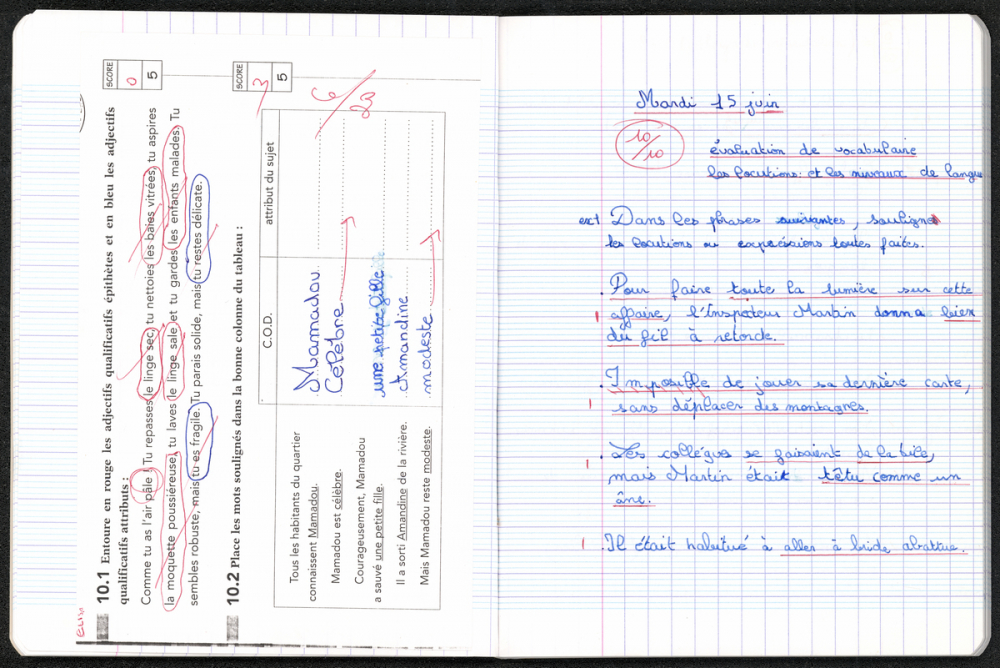 10.1 Entoure en rouge les adjectifs qualificatifs épithètes et en bleu les adjectifs
qualificatifs attributs :
SCORE
0
5
Comme tu as l'air pâle ! Tu repasses le linge sec, tu nettoies les baies vitrées, tu aspires
la moquette poussiéreuse, tu laves le linge sale et tu gardes les enfants malades. Tu
sembles robuste, mais tu es fragile. Tu parais solide, mais tu restes délicate.
10.2 Place les mots soulignés dans la bonne colonne du tableau :
SCORE
3
5
C.O.D.
attribut du sujet
Tous les habitants du quartier
connaissent Mamadou.
Mamadou
Mamadou est célèbre.
Célèbre
Courageusement, Mamadou
a sauvé une petite fille.
une petite fille
Il a sorti Amandine de la rivière.
Amandine
Mais Mamadou reste modeste.
modeste
Mardi 15 juin
10/10
évaluation de vocabulaire
les locutions et les niveaux de langue
ex1 Dans les phrases suivantes, souligne
les locutions ou expressions toutes faites.
. Pour faire toute la lumière sur cette
1 affaire, l'Inspecteur Martin donna bien
du fil à retorde.
. Impossible de jouer sa dernière carte,
1 sans déplacer des montagnes.
. Les collégues se faisaient de la bile,
1 mais Martin était têtu comme un
âne.
1 . Il était habitué à aller à bride abattue.